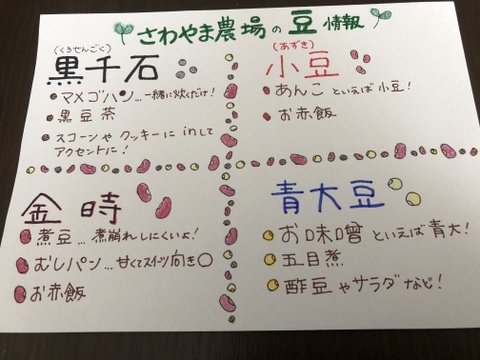 さわやま農場の豆情報
(くろせんごく)
黒千石
・マメゴハン…一緒に炊くだけ!
・黒豆茶
・スコーンやクッキーにinして
アクセントに!
(あずき)
小豆
・あんこといえば小豆!
・お赤飯
金時
・煮豆…煮崩れしにくいよ!
・むしパン…甘くてスイーツ向き○
・お赤飯
青大豆
・お味噌といえば青大!
・五目煮
・酢豆やサラダなど!